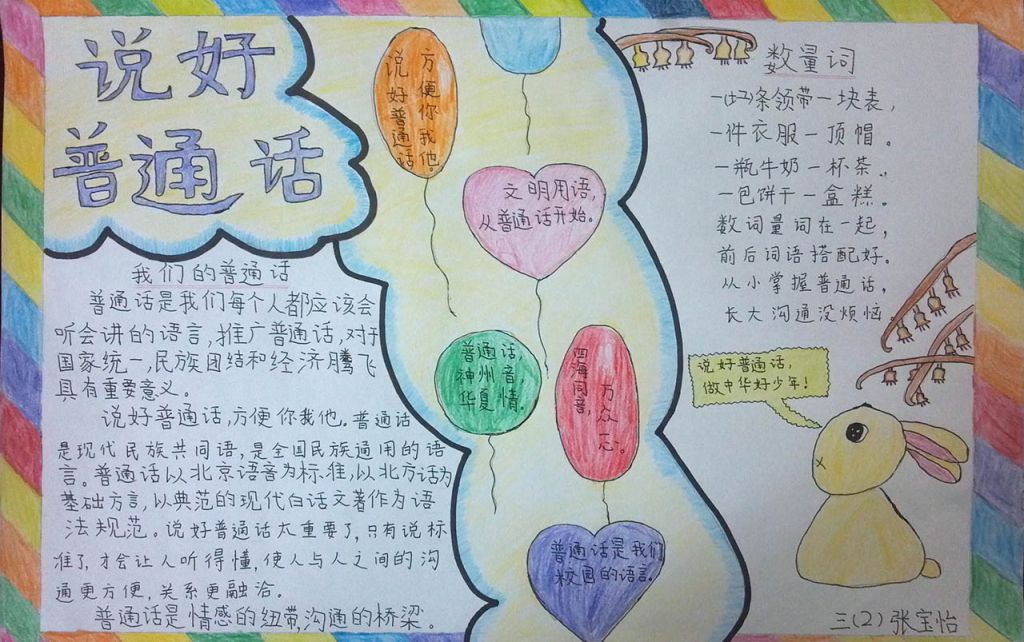 说好
普通话
我们的普通话
普通话是我们每个人都应该会
听会讲的语言，推广普通话，对于
国家统一，民族团结和经济腾飞
具有重要意义。
说好普通话，方便你我他。普通话
是现代民族共同语，是全国民族通用的语
言。普通话以北京语音为标准，以北方话为
基础方言，以典范的现代白话文著作为语
法规范。说好普通话太重要了，只有说标
准了，才会让人听得懂，使人与人之间的沟
通更方便，关系更融洽。
普通话是情感的纽带，沟通的桥梁。
说好普通话
方便你我他。
文明用语，
从普通话开始。
普通话，
神州音，
华夏情。
四海同音，
万众一心。
普通话是我们
校园的语言。
数量词
条领带一块表，
一件衣服一顶帽。
一瓶牛奶一杯茶。，
一包饼干一盒糕。
数词量词在一起，
前后词语搭配好。
从小掌握普通话，
长大沟通没烦恼。
说好普通话，
做中华好少年！
三(2)张宝怡